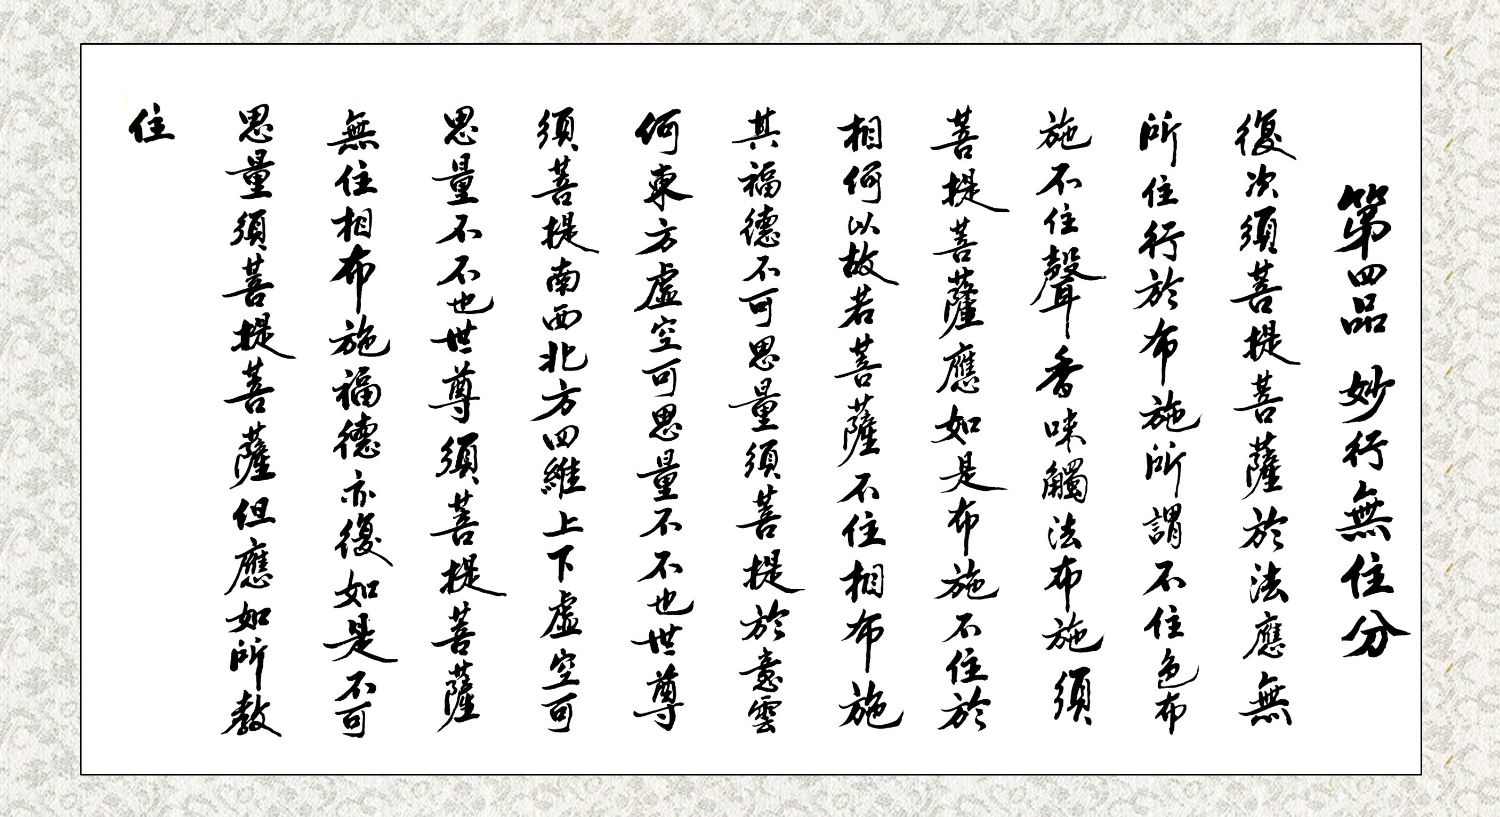 第四品 妙行無住分
復次須菩提菩薩於法應無
所住行於布施所謂不住色布
施不住聲香味觸法布施須
菩提菩薩應如是布施不住於
相何以故若菩薩不住相布施
其福德不可思量須菩提於意雲
何東方虛空可思量不不也世尊
須菩提南西北方四維上下虛空可
思量不不也世尊須菩提菩薩
無住相布施福德亦復如是不可
思量須菩提菩薩但應如所教
住